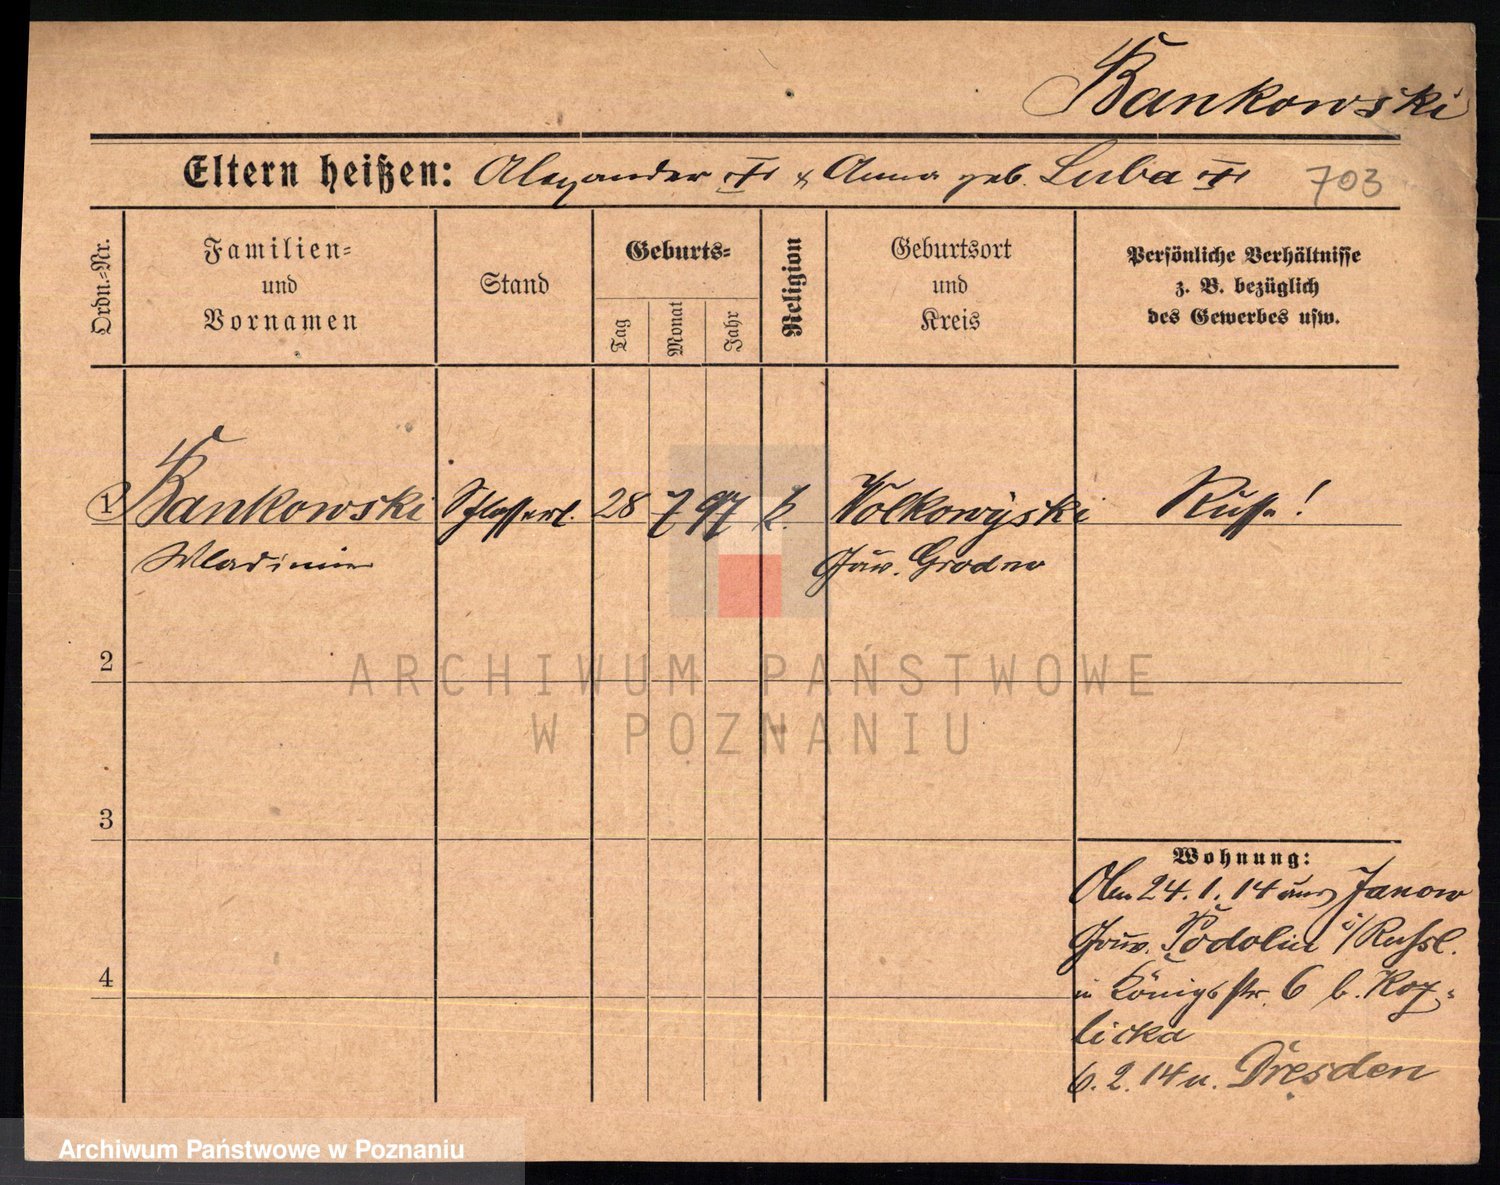 Bankowski
Eltern heißen: Alexander † & Anna geb. Luba † 703
Ordn.-Nr.
Familien-
und
Vornamen
Stand
Geburts-
Tag
Monat
Jahr
Religion
Geburtsort
und
Kreis
Persönliche Verhältnisse
z. B. bezüglich
des Gewerbes usw.
1 Bankowski Schlosserl. 28 7 97 k. Wolkowyski Russe!
Wladimir Gouv. Grodno
2
ARCHIWUM PAŃSTWOWE
W POZNANIU
3
Wohnung:
24.1.14 aus Janow
Gouv. Podolien i/Russl.
in Königstr. 6 b. Koz-
licka
6.2.14 n. Dresden
4
Archiwum Państwowe w Poznaniu